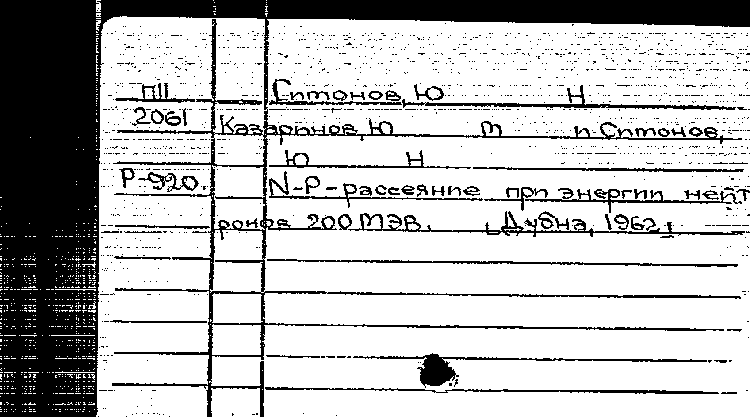 П11 Симонов, Ю Н
2061 Казаринов, Ю М и Симонов,
Ю Н
Р-920. N-P-рассеяние при энергии нейт
ронов 200 МЭВ. [Дубна, 1962]